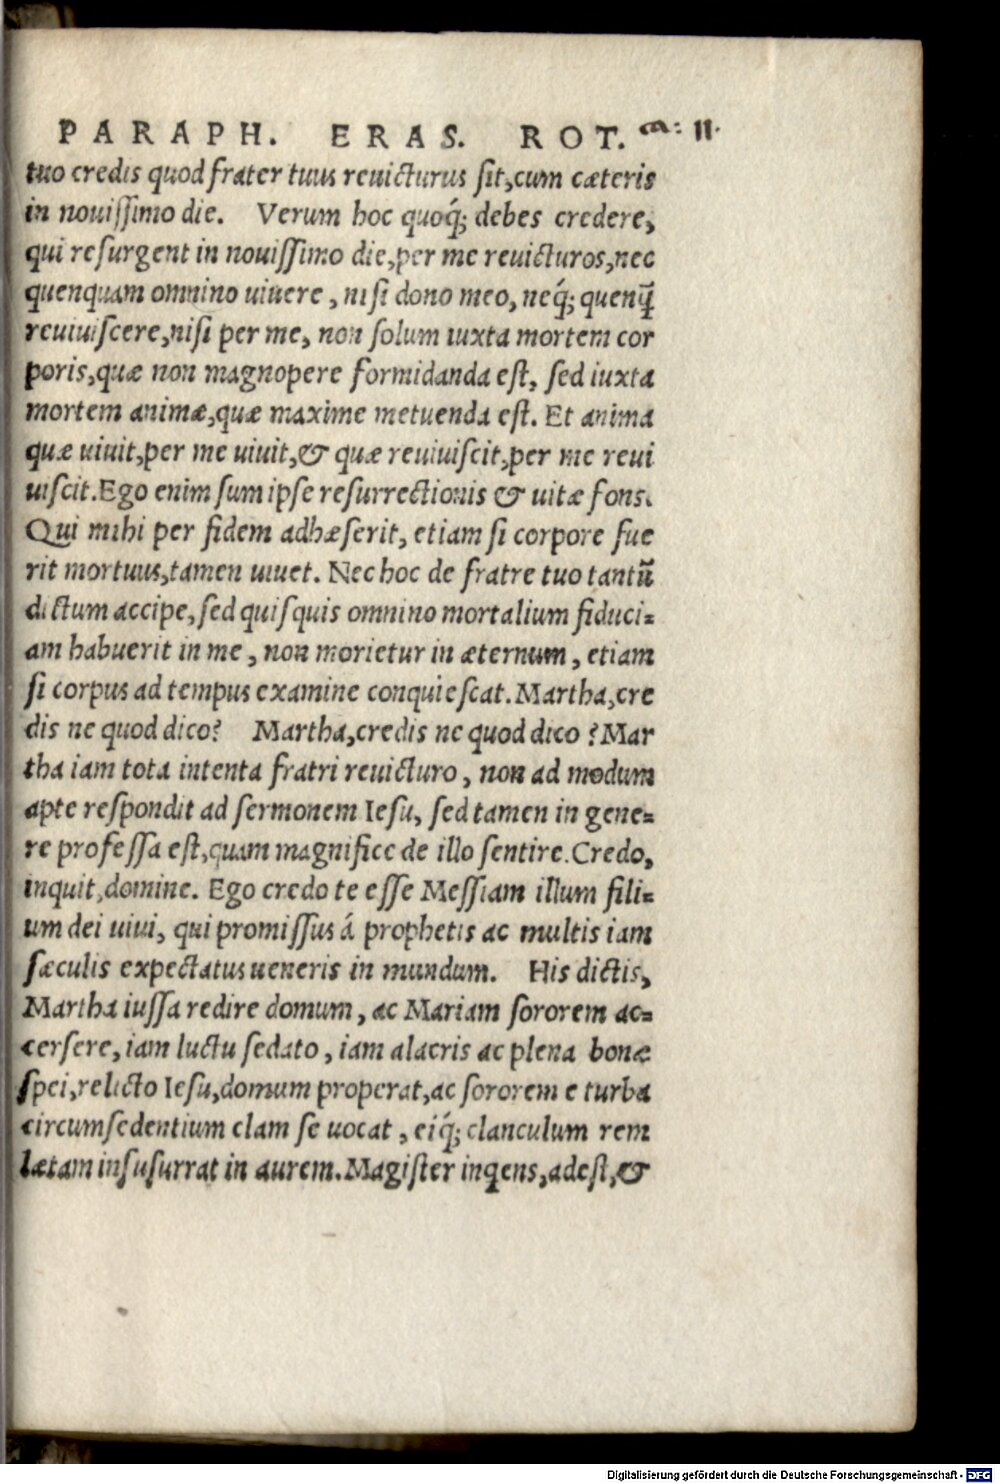 PARAPH. ERAS. ROT. ca: 11.
tuo credis quod frater tuus reuicturus sit,cum cæteris
in nouissimo die. Verum hoc quoq́; debes credere,
qui resurgent in nouissimo die,per me reuicturos,nec
quenquam omnino uiuere, nisi dono meo, neq́; quenq̃
reuiuiscere,nisi per me, non solum iuxta mortem cor
poris,quæ non magnopere formidanda est, sed iuxta
mortem animæ,quæ maxime metuenda est. Et anima
quæ uiuit,per me uiuit,& quæ reuiuiscit,per me reui
uiscit.Ego enim sum ipse resurrectionis & uitæ fons.
Qui mihi per fidem adhæserit, etiam si corpore fue
rit mortuus,tamen uiuet. Nec hoc de fratre tuo tantũ
dictum accipe, sed quisquis omnino mortalium fiduci=
am habuerit in me, non morietur in æternum, etiam
si corpus ad tempus examine conquiescat. Martha,cre
dis ne quod dico? Martha,credis ne quod dico? Mar
tha iam tota intenta fratri reuicturo, non ad modum
apte respondit ad sermonem Iesu, sed tamen in gene=
re professa est,quam magnifice de illo sentire. Credo,
inquit,domine. Ego credo te esse Messiam illum fili=
um dei uiui, qui promissus á prophetis ac multis iam
sæculis expectatus ueneris in mundum. His dictis,
Martha iussa redire domum, ac Mariam sororem ac=
cersere, iam luctu sedato, iam alacris ac plena bonæ
spei,relicto Iesu,domum properat,ac sororem e turba
circumsedentium clam se uocat, eiq́; clanculum rem
lætam insusurrat in aurem. Magister inqens,adest,&
Digitalisierung gefördert durch die Deutsche Forschungsgemeinschaft - DFG